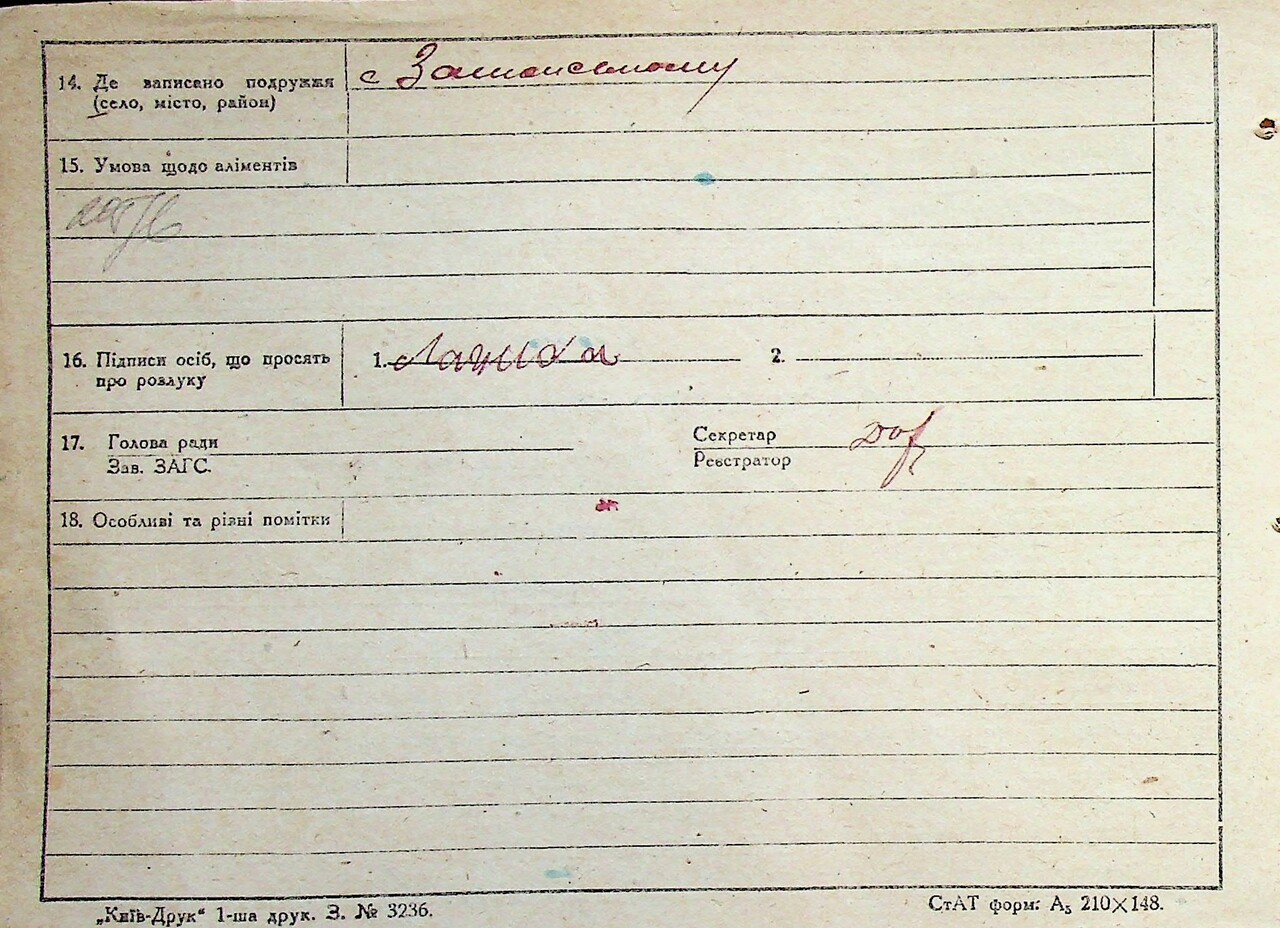 14. Де записано подружжя
(село, місто, район)
с
15. Умова щодо аліментів
16. Підписи осіб, що просять
про розлуку
1.
2.
17. Голова ради
Зав. ЗАГС.
Секретар
Реєстратор
18. Особливі та різні помітки
„Київ-Друк“ 1-ша друк. З. № 3236.
СтАТ форм: А₅ 210×148.